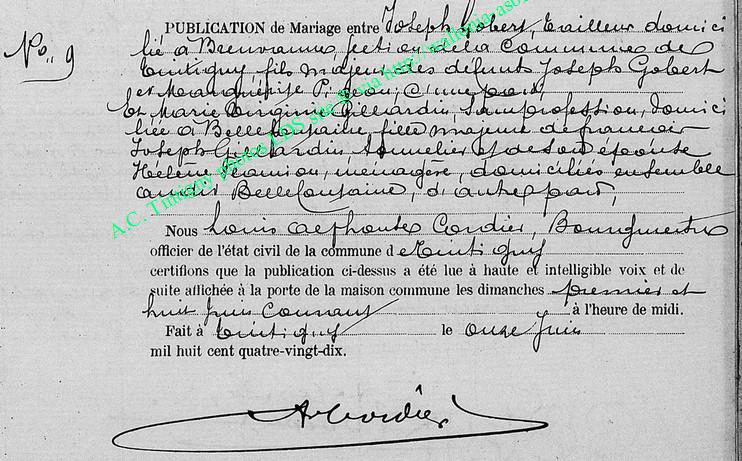 No. 9
PUBLICATION de Mariage entre Joseph Gobert, tailleur domici
lié à Breuvanne, section de la Commune de
Tintigny, fils majeur des défunts Joseph Gobert
et Marguerite Pigeon, d'une part,
Et Marie Virginie Gillardin, sans profession, domici
liée à Bellefontaine, fille majeure de françois
Joseph Gillardin, et de son épouse
Hélène, ménagère, domiciliés ensemble
Bellefontaine, d'autre part,
Nous Louis Alphonse Cordier, Bourgmestre
officier de l'état civil de la commune d e Tintigny
certifions que la publication ci-dessus a été lue à haute et intelligible voix et de
suite affichée à la porte de la maison commune les dimanches premier et
huit Juin Courant à l'heure de midi.
Fait à Tintigny le onze Juin
mil huit cent quatre-vingt-dix.
A Cordier
A.C. Tintigny photos LDS site via http://wallonia.aso